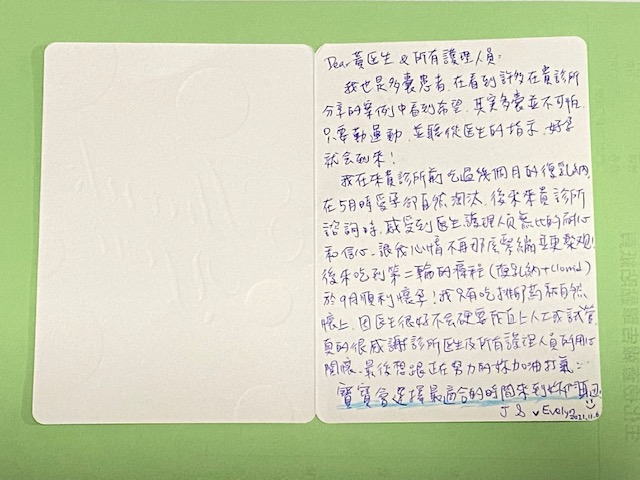 Dear 黃医生 & 所有護理人員:
我也是多囊患者，在看到許多在貴診所
分享的案例中看到希望，其實多囊並不可怕
只要勤運動，並聽從医生的指示，好孕
就会到來！
我在來貴診所前吃過幾個月的復乳納，
在5月時受孕卻自然淘汰，後來來貴診所
諮詢時，感受到医生、護理人員無比的耐心
和信心，讓我心情不再那麼緊繃並更樂觀！
後來吃到第二輪的療程（復乳納+Clomid）
於9月順利懷孕！我只有吃排卵藥就自然
懷上，因医生很好不会硬要我直上人工或試管，
真的很感謝診所医生及所有護理人員的用心
關懷，最後想跟正在努力的妳加油打氣：
寶寶會選擇最適合的時間來到妳們
J & ♥ Evelyn
2021.11.6